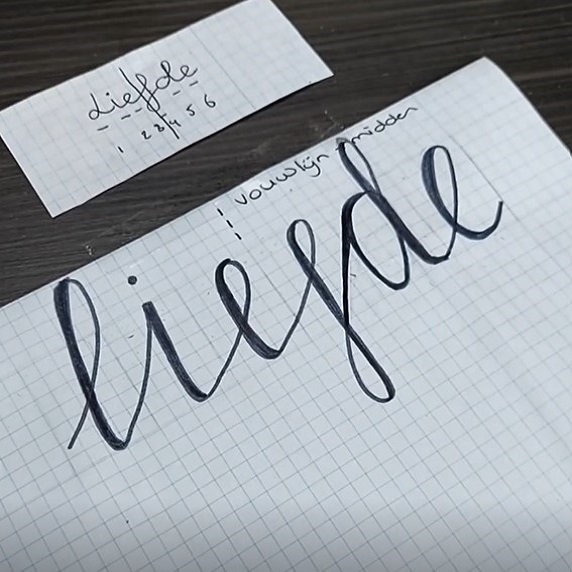 Liefde
1 2 3 4 5 6
vouwlijn - midden
liefde